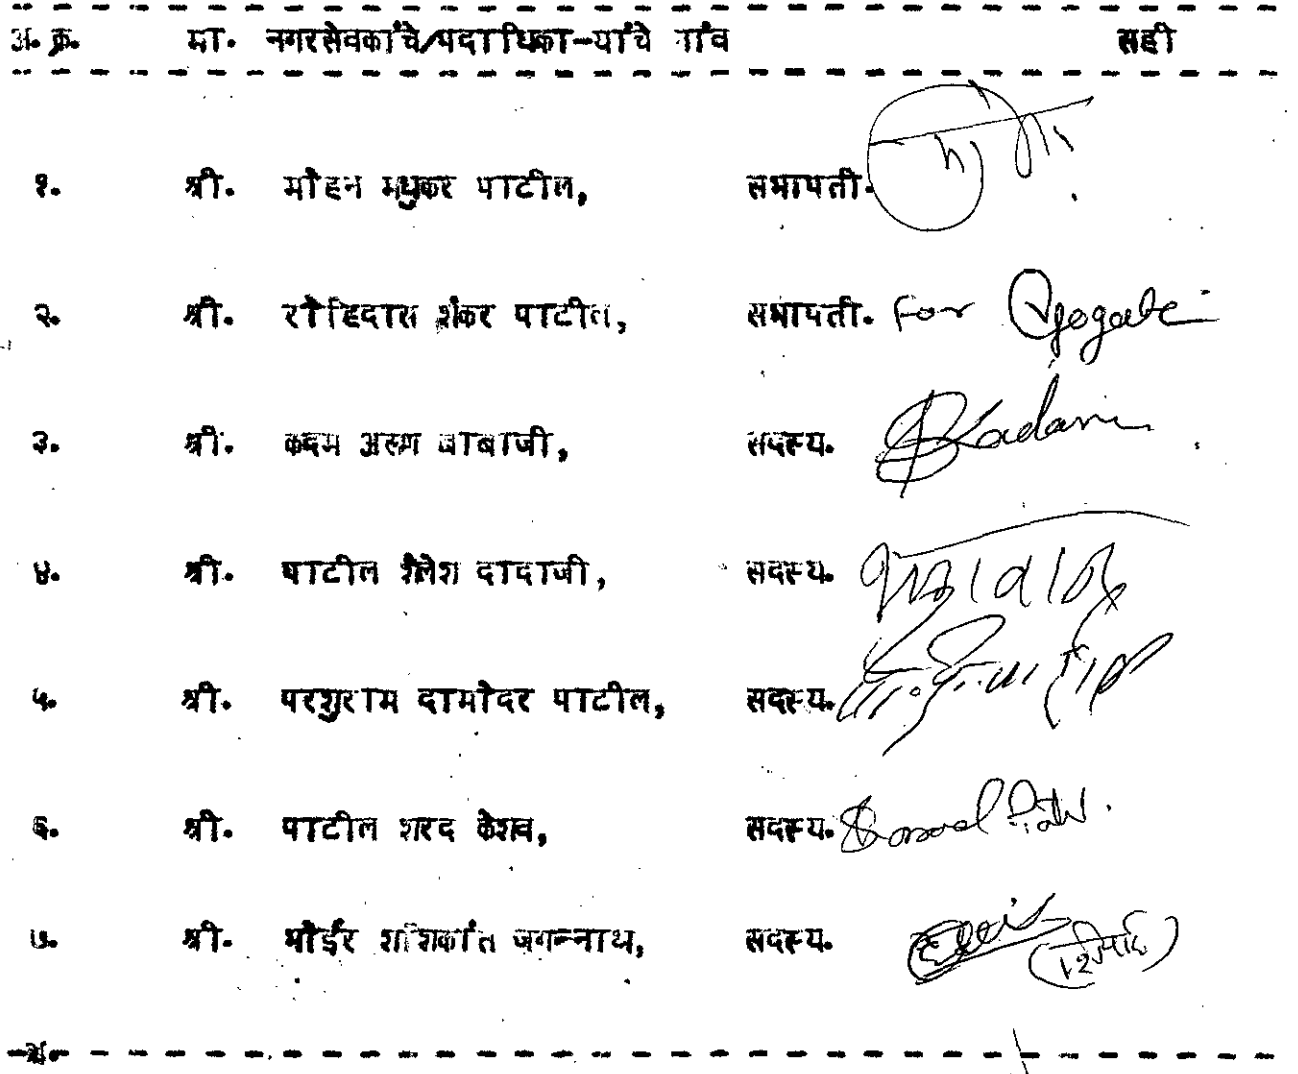 अ. क्र. मा. नगरसेवकांचे/पदाधिका-यांचे नांव सही
१. श्री. मोहन मधुकर पाटील, सभापती.
२. श्री. रोहिदास शंकर पाटील, सभापती. For
३. श्री. कदम अरूण बाबाजी, सदस्य. Kadam
४. श्री. पाटील शैलेश दादाजी, सदस्य.
५. श्री. परशुराम दामोदर पाटील, सदस्य.
६. श्री. पाटील शरद केशव, सदस्य. Sharad Patil.
७. श्री. भोईर शशिकांत जगन्नाथ, सदस्य.